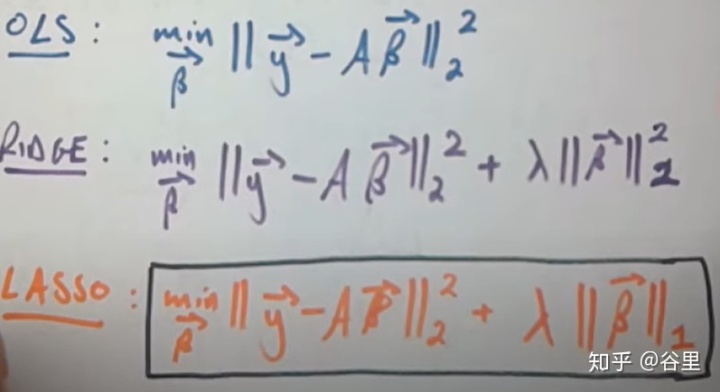 OLS : min β⃗ ‖y⃗ - Aβ⃗‖₂²
RIDGE : min β⃗ ‖y⃗ - Aβ⃗‖₂² + λ‖β⃗‖₂²
LASSO : min β⃗ ‖y⃗ - Aβ⃗‖₂² + λ‖β⃗‖₁
知乎 @谷里